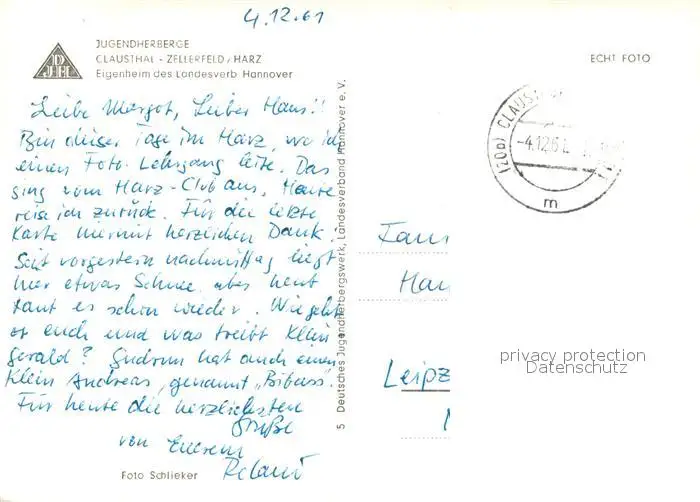 4.12.61
JUGENDHERBERGE
CLAUSTHAL - ZELLERFELD / HARZ
Eigenheim des Landesverb Hannover
DJH
ECHT FOTO
Liebe Margot, Lieber Hans!!
Bin dieser Tage im Harz, wo ich
einen Foto-Lehrgang leite. Das
ging vom Harz-Club aus. Heute
reise ich zurück. Für die letzte
Karte hiermit herzlichen Dank!
Seit vorgestern nachmittag liegt
hier etwas Schnee, aber heut
taut es schon wieder. Wie geht
es euch und was treibt Klein
Gerald? Gudrun hat auch einen
Klein Andreas, genannt "Bibass".
Für heute die herzlichsten
Grüße
von Eurem
Roland
Foto Schlieker
5 Deutsches Jugendherbergswerk, Landesverband Hannover e. V.
(20b) CLAUS
-4.12.6
m
Fam
Han
Leipz
privacy protection
Datenschutz